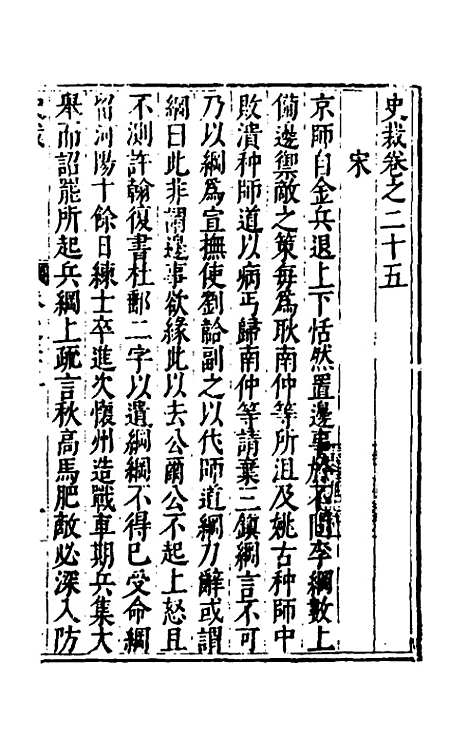 史裁卷之二十五
宋
京師自金兵退上下恬然置邊事於不問李綱數上
備邊禦敵之策每為耿南仲等所沮及姚古种師中
敗潰种師道以病丐歸南仲等請棄三鎮綱言不可
乃以綱為宣撫使劉韐副之以代師道綱力辭或謂
綱曰此非謂邊事欲緣此以去公爾公不起上怒且
不測許翰復書杜郵二字以遺綱綱不得已受命綱
留河陽十餘日練士卒進次懷州造戰車期兵集大
舉而詔罷所起兵綱上疏言秋高馬肥敵必深入防